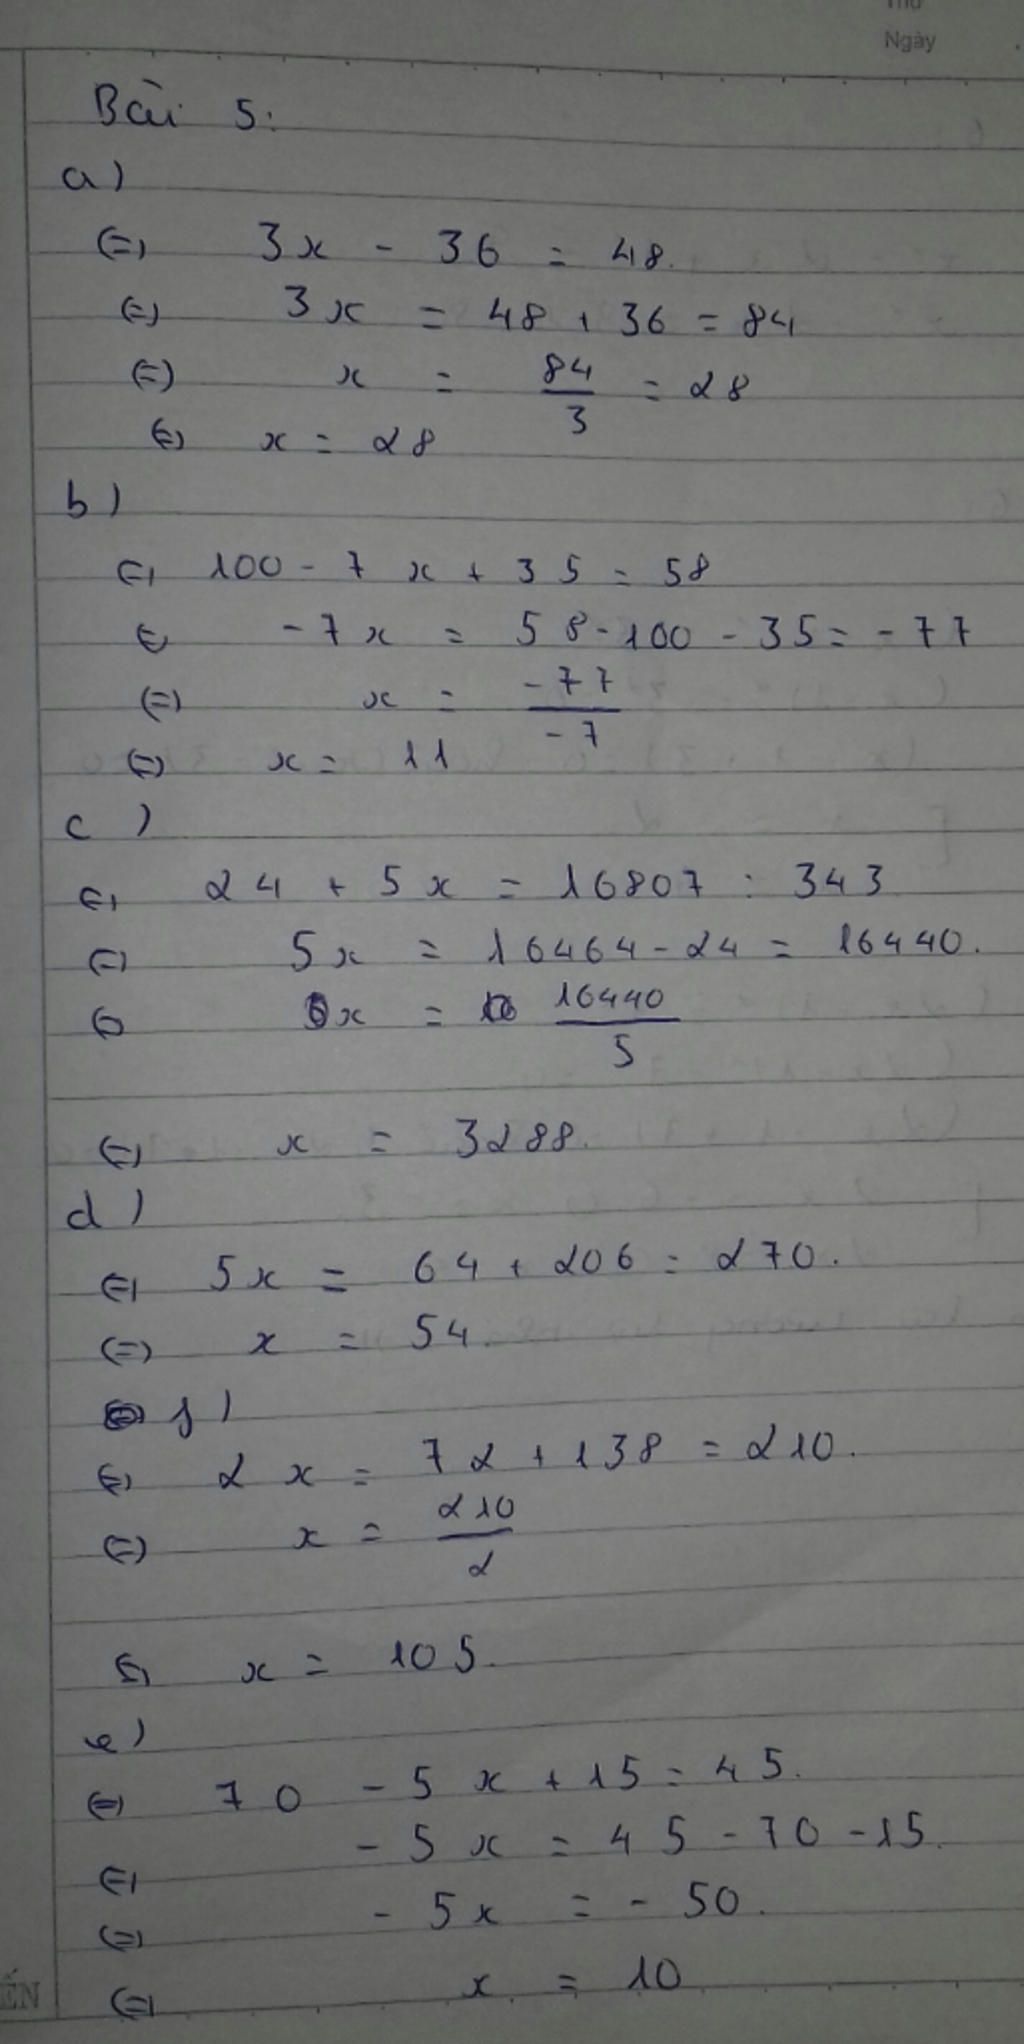 Ngày
Bài 5:
a)
(=) 3x - 36 = 48.
(=) 3x = 48 + 36 = 84
(=) x = 84/3 = 28
(=) x = 28
b)
(=) 100 - 7x + 35 = 58
(=) -7x = 58 - 100 - 35 = -77
(=) x = -77/-7
(=) x = 11
c)
(=) 24 + 5x = 16807 : 343
(=) 5x = 16464 - 24 = 16440.
(=) x = 16440/5
(=) x = 3288.
d)
(=) 5x = 64 + 206 = 270.
(=) x = 54.
f)
(=) 2x = 72 + 138 = 210.
(=) x = 210/2
(=) x = 105.
e)
(=) 70 - 5x + 15 = 45.
(=) -5x = 45 - 70 - 15.
(=) -5x = -50.
(=) x = 10